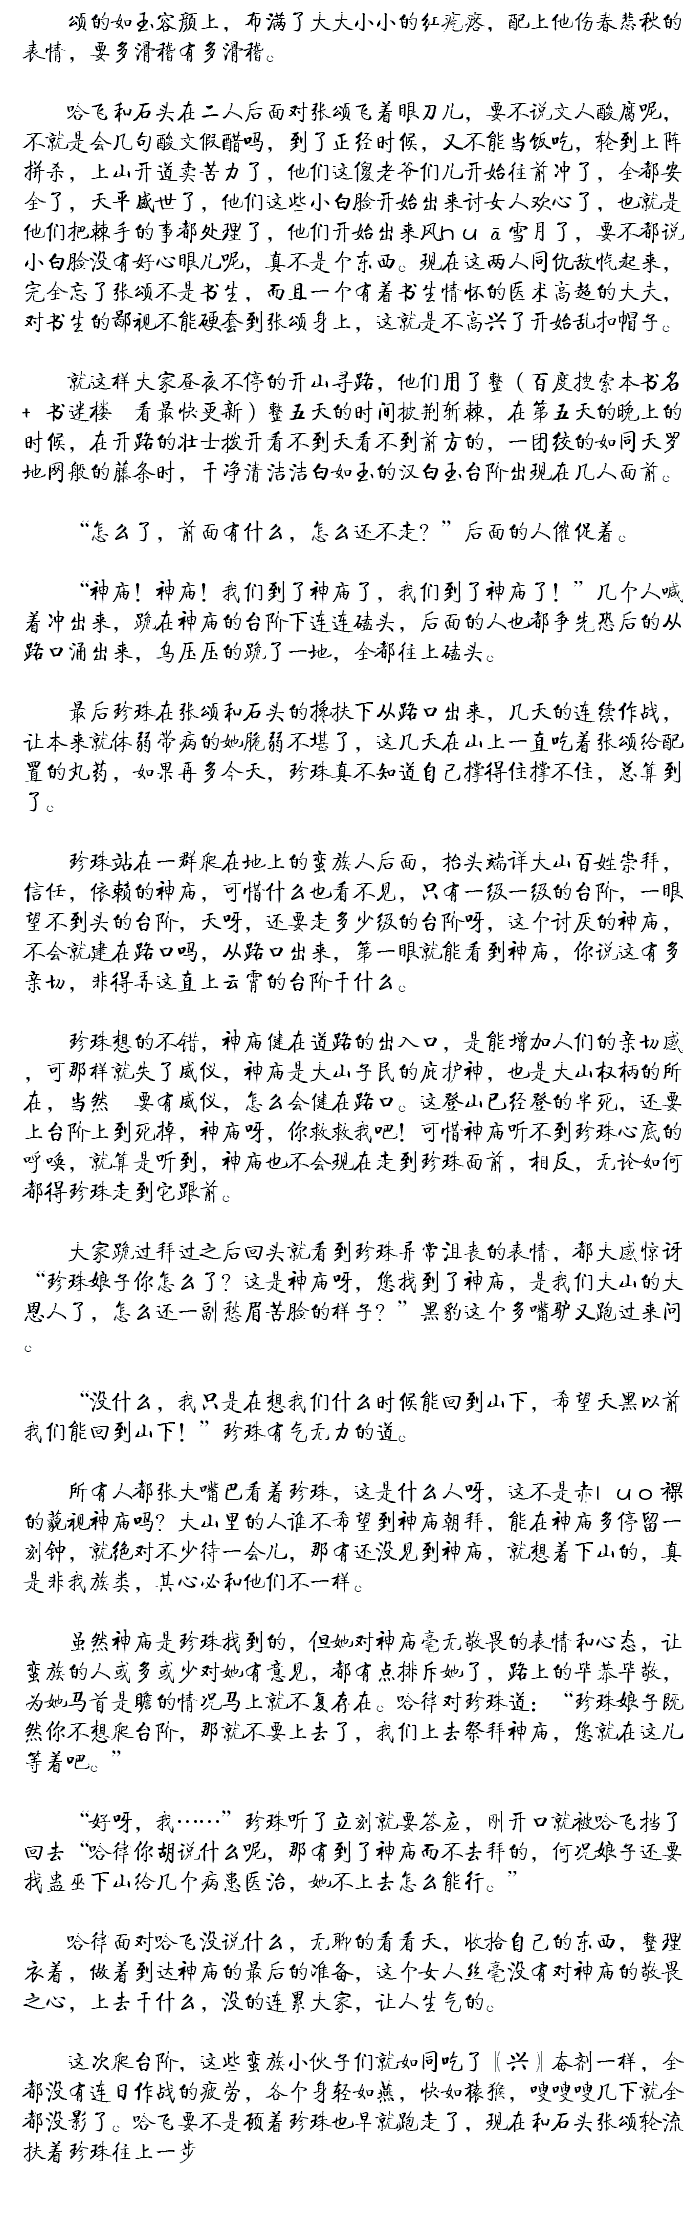 颂的如玉容颜上，布满了大大小小的红疙瘩，配上他伤春悲秋的
表情，要多滑稽有多滑稽。
哈飞和石头在二人后面对张颂飞着眼刀儿，要不说文人酸腐呢，
不就是会几句酸文假醋吗，到了正径时候，又不能当饭吃，轮到上阵
拼杀，上山开道卖苦力了，他们这傻老爷们儿开始往前冲了，全都安
全了，天平盛世了，他们这些小白脸开始出来讨女人欢心了，也就是
他们把棘手的事都处理了，他们开始出来风huā雪月了，要不都说
小白脸没有好心眼儿呢，真不是个东西。现在这两人同仇敌忾起来，
完全忘了张颂不是书生，而且一个有着书生情怀的医术高超的大夫，
对书生的鄙视不能硬套到张颂身上，这就是不高兴了开始乱扣帽子。
就这样大家昼夜不停的开山寻路，他们用了整（百度搜索本书名
+ 书迷楼 看最快更新）整五天的时间披荆斩棘，在第五天的晚上的
时候，在开路的壮士拨开看不到天看不到前方的，一团绞的如同天罗
地网般的藤条时，干净清洁洁白如玉的汉白玉台阶出现在几人面前。
“怎么了，前面有什么，怎么还不走？”后面的人催促着。
“神庙！神庙！我们到了神庙了，我们到了神庙了！”几个人喊
着冲出来，跪在神庙的台阶下连连磕头，后面的人也都争先恐后的从
路口涌出来，乌压压的跪了一地，全都往上磕头。
最后珍珠在张颂和石头的搀扶下从路口出来，几天的连续作战，
让本来就体弱带病的她脆弱不堪了，这几天在山上一直吃着张颂给配
置的丸药，如果再多今天，珍珠真不知道自己撑得住撑不住，总算到
了。
珍珠站在一群爬在地上的蛮族人后面，抬头端详大山百姓崇拜，
信任，依赖的神庙，可惜什么也看不见，只有一级一级的台阶，一眼
望不到头的台阶，天呀，还要走多少级的台阶呀，这个讨厌的神庙，
不会就建在路口吗，从路口出来，第一眼就能看到神庙，你说这有多
亲切，非得弄这直上云霄的台阶干什么。
珍珠想的不错，神庙健在道路的出入口，是能增加人们的亲切感
，可那样就失了威仪，神庙是大山子民的庇护神，也是大山权柄的所
在，当然 要有威仪，怎么会健在路口。这登山已经登的半死，还要
上台阶上到死掉，神庙呀，你救救我吧！可惜神庙听不到珍珠心底的
呼唤，就算是听到，神庙也不会现在走到珍珠面前，相反，无论如何
都得珍珠走到它跟前。
大家跪过拜过之后回头就看到珍珠异常沮丧的表情，都大感惊讶
“珍珠娘子你怎么了？这是神庙呀，您找到了神庙，是我们大山的大
恩人了，怎么还一副愁眉苦脸的样子？”黑豹这个多嘴驴又跑过来问
。
“没什么，我只是在想我们什么时候能回到山下，希望天黑以前
我们能回到山下！”珍珠有气无力的道。
所有人都张大嘴巴看着珍珠，这是什么人呀，这不是赤luo裸
的藐视神庙吗？大山里的人谁不希望到神庙朝拜，能在神庙多停留一
刻钟，就绝对不少待一会儿，那有还没见到神庙，就想着下山的，真
是非我族类，其心必和他们不一样。
虽然神庙是珍珠找到的，但她对神庙毫无敬畏的表情和心态，让
蛮族的人或多或少对她有意见，都有点排斥她了，路上的毕恭毕敬，
为她马首是瞻的情况马上就不复存在。哈律对珍珠道：“珍珠娘子既
然你不想爬台阶，那就不要上去了，我们上去祭拜神庙，您就在这儿
等着吧。”
“好呀，我……”珍珠听了立刻就要答应，刚开口就被哈飞挡了
回去“哈律你胡说什么呢，那有到了神庙而不去拜的，何况娘子还要
找蛊巫下山给几个病患医治，她不上去怎么能行。”
哈律面对哈飞没说什么，无聊的看看天，收拾自己的东西，整理
衣着，做着到达神庙的最后的准备，这个女人丝毫没有对神庙的敬畏
之心，上去干什么，没的连累大家，让人生气的。
这次爬台阶，这些蛮族小伙子们就如同吃了〖兴〗奋剂一样，全
都没有连日作战的疲劳，各个身轻如燕，快如猿猴，嗖嗖嗖几下就全
都没影了。哈飞要不是顾着珍珠也早就跑走了，现在和石头张颂轮流
扶着珍珠往上一步